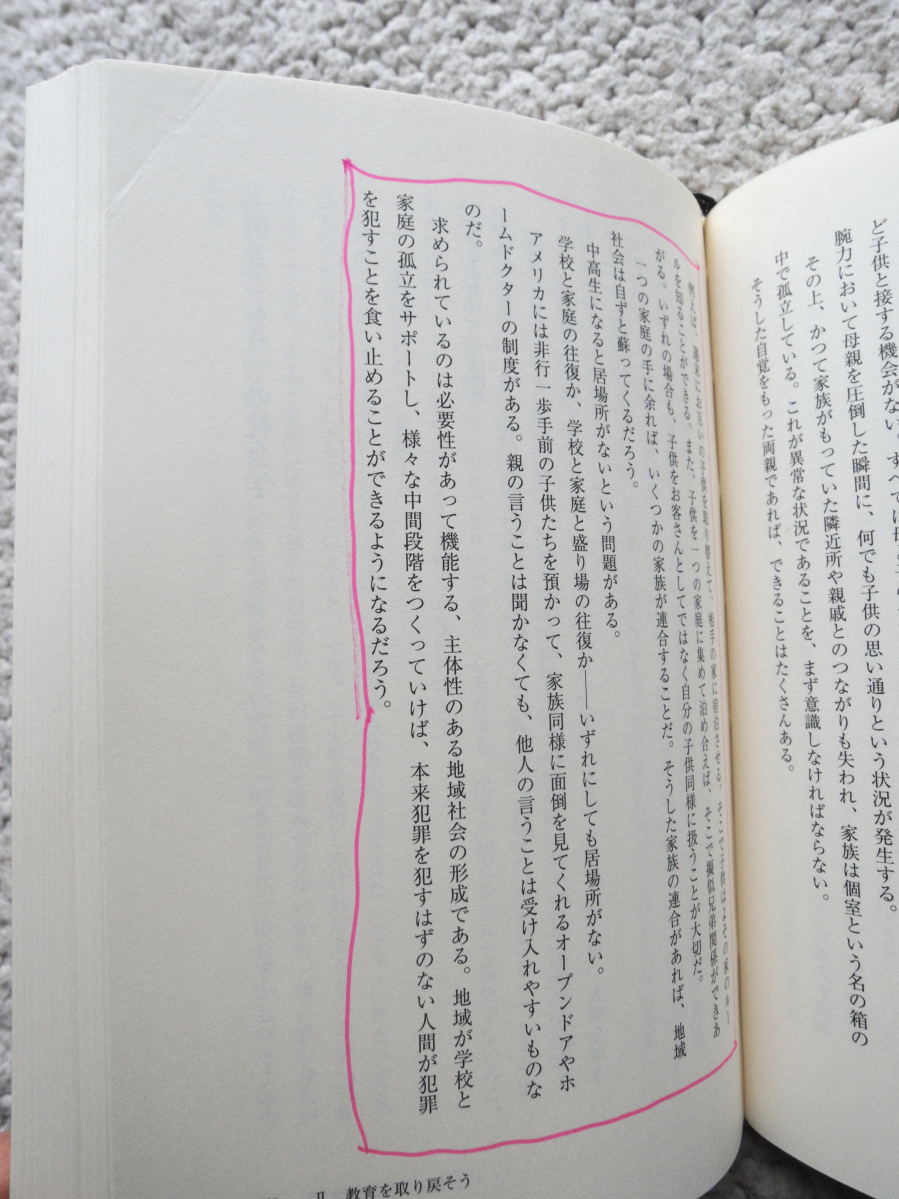 ど子供と接する機会がない。すべては母
腕力において母親を圧倒した瞬間に、何でも子供の思い通りという状況が発生する。
その上、かつて家族がもっていた隣近所や親戚とのつながりも失われ、家族は個室という名の箱の
中で孤立している。これが異常な状況であることを、まず意識しなければならない。
そうした自覚をもった両親であれば、できることはたくさんある。
例えば、週末にお互いの子供を取り替えて、相手の家に宿泊させる。そこで子供はよその家のルー
ルを知ることができる。また、子供を一つの家庭に集めて泊め合えば、そこで擬似兄弟関係ができあ
がる。いずれの場合も、子供をお客さんとしてではなく自分の子供同様に扱うことが大切だ。
一つの家庭の手に余れば、いくつかの家族が連合することだ。そうした家族の連合があれば、地域
社会は自ずと蘇ってくるだろう。
中高生になると居場所がないという問題がある。
学校と家庭の往復か、学校と家庭と盛り場の往復か――いずれにしても居場所がない。
アメリカには非行一歩手前の子供たちを預かって、家族同様に面倒を見てくれるオープンドアやホ
ームドクターの制度がある。親の言うことは聞かなくても、他人の言うことは受け入れやすいものな
のだ。
求められているのは必要性があって機能する、主体性のある地域社会の形成である。地域が学校と
家庭の孤立をサポートし、様々な中間段階をつくっていけば、本来犯罪を犯すはずのない人間が犯罪
を犯すことを食い止めることができるようになるだろう。
Ⅱ 教育を取り戻そう